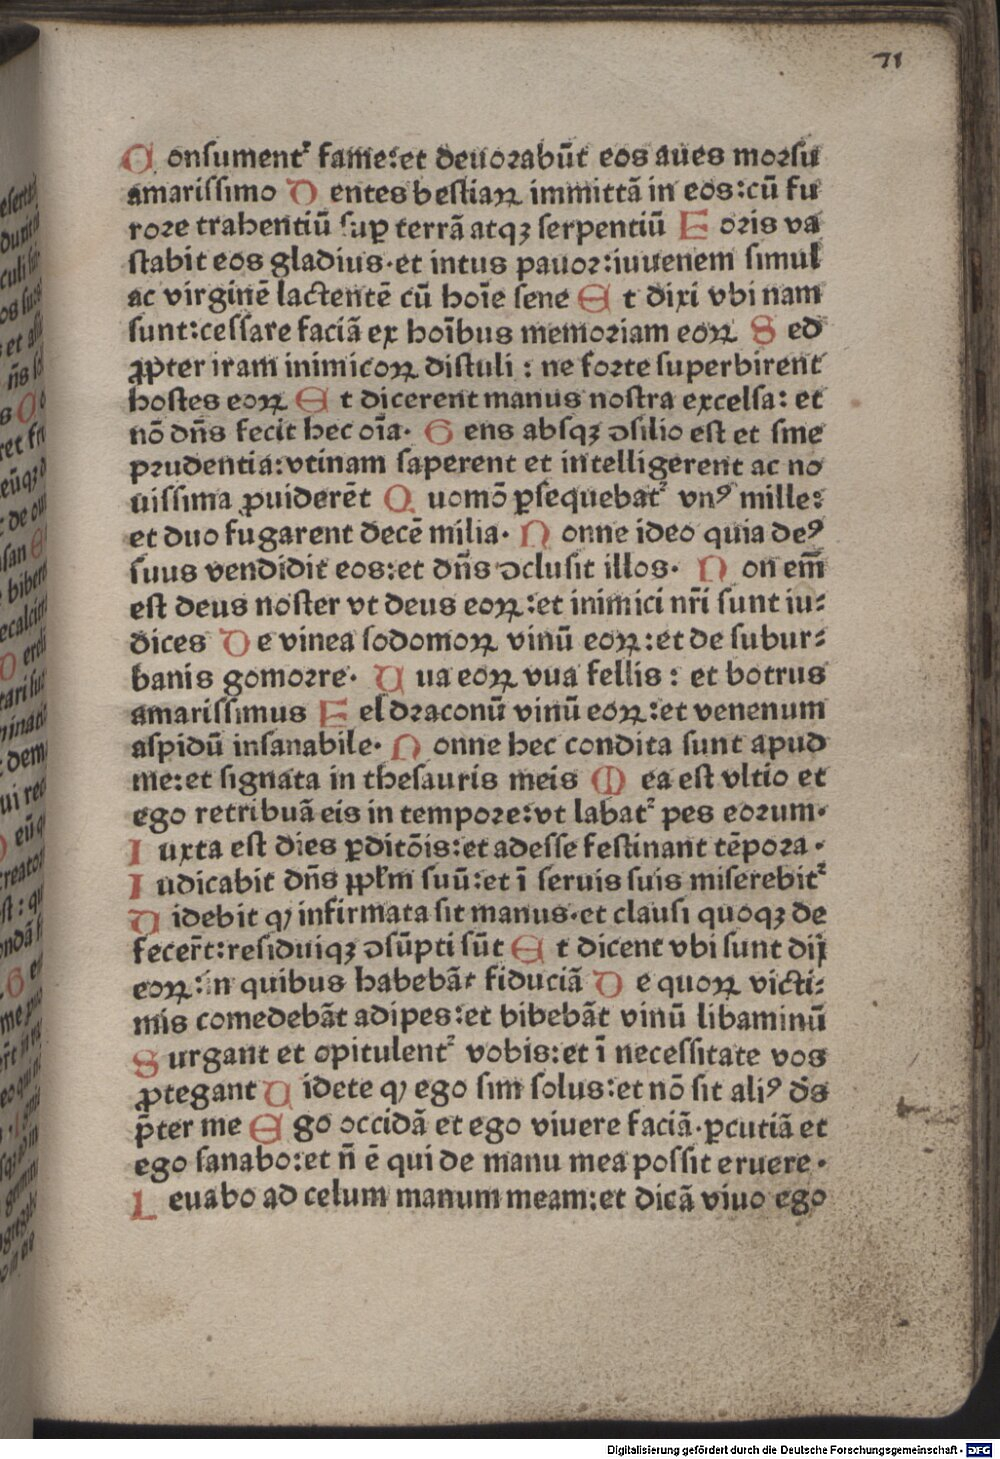 71
Consumentᷣ fame:et deuorabūt eos aues morsu
amarissimo Dentes bestiaꝝ immittā in eos:cū fu
rore trahentiū sup̱ terrā atqꝫ serpentiū Foris va
stabit eos gladius·et intus pauor:iuuenem simul
ac virginē lactentē cū hoīe sene Et dixi vbi nam
sunt:cessare faciā ex hoībus memoriam eoꝝ Sed
ꝓpter iram inimicoꝝ distuli : ne forte superbirent
hostes eoꝝ Et dicerent manus nostra excelsa: et
nō dn̄s fecit hec oīa· Gens absqꝫ ꝯsilio est et sine
prudentia:vtinam saperent et intelligerent ac no
uissima ꝓuiderēt Quomō ꝑsequebatᷣ vnꝰ mille:
et duo fugarent decē milia· Nonne ideo quia deꝰ
suus vendidit eos:et dn̄s ꝯclusit illos· Non em̄
est deus noster vt deus eoꝝ:et inimici nr̄i sunt iu:
dices De vinea sodomoꝝ vinū eoꝝ:et de subur:
banis gomorre· Uua eoꝝ vua fellis : et botrus
amarissimus Fel draconū vinū eoꝝ:et venenum
aspidū insanabile· Nonne hec condita sunt apud
me:et signata in thesauris meis Mea est vltio et
ego retribuā eis in tempore:vt labatᷣ pes eorum·
Iuxta est dies ꝑditōis:et adesse festinant tēpora·
Iudicabit dn̄s pp̄lm suū:et ī seruis suis miserebitᷣ
Uidebit ꝙ infirmata sit manus·et clausi quoqꝫ de
fecer̄t:residuiqꝫ ꝯsūpti sūt Et dicent vbi sunt dij
eoꝝ:in quibus habebāt fiduciā De quoꝝ victi:
mis comedebāt adipes:et bibebāt vinū libaminū
Surgant et opitulentᷣ vobis:et ī necessitate vos
ꝓtegant Uidete ꝙ ego sim solus:et nō sit aliꝰ ds̄
p̄ter me Ego occidā et ego viuere faciā·ꝑcutiā et
ego sanabo:et n̄ ē qui de manu mea possit eruere·
Leuabo ad celum manum meam:et dicā viuo ego
Digitalisierung gefördert durch die Deutsche Forschungsgemeinschaft - DFG